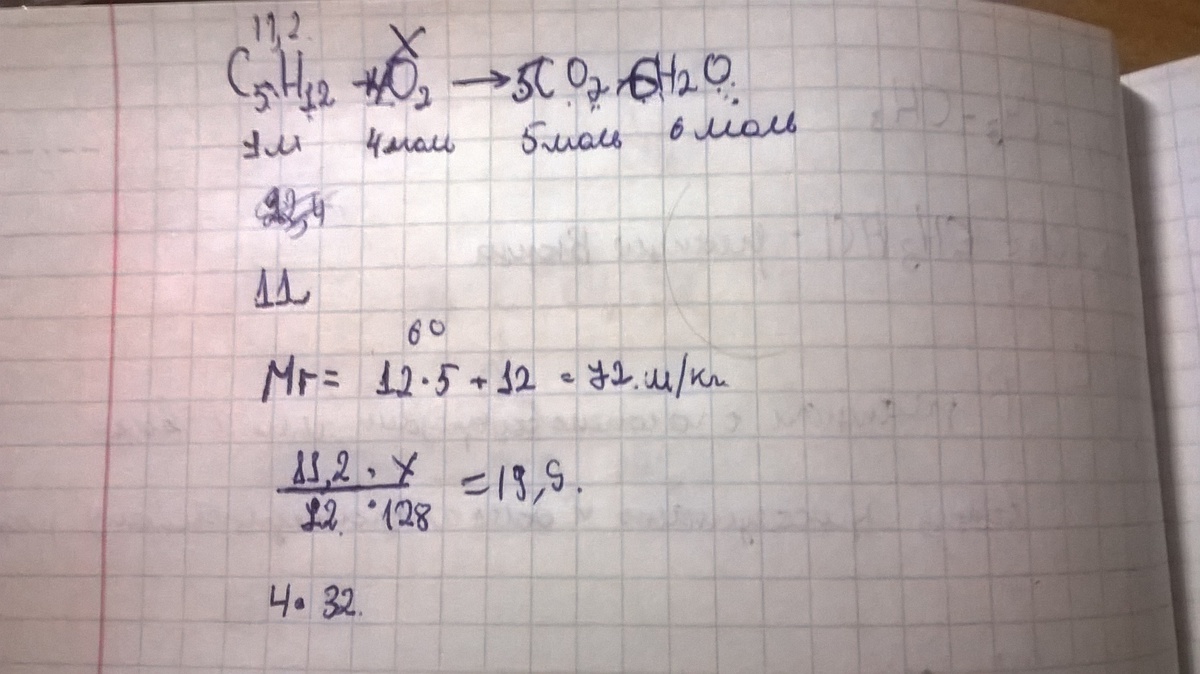 11,2 X
C5H12 + 4O2 → 5CO2 + 6H2O
1м 4моль 5моль 6 моль
22,4
11
60
Mr = 12·5 + 12 = 72. м/кг
11,2 · X = 19,9.
72 · 128
4 · 32.